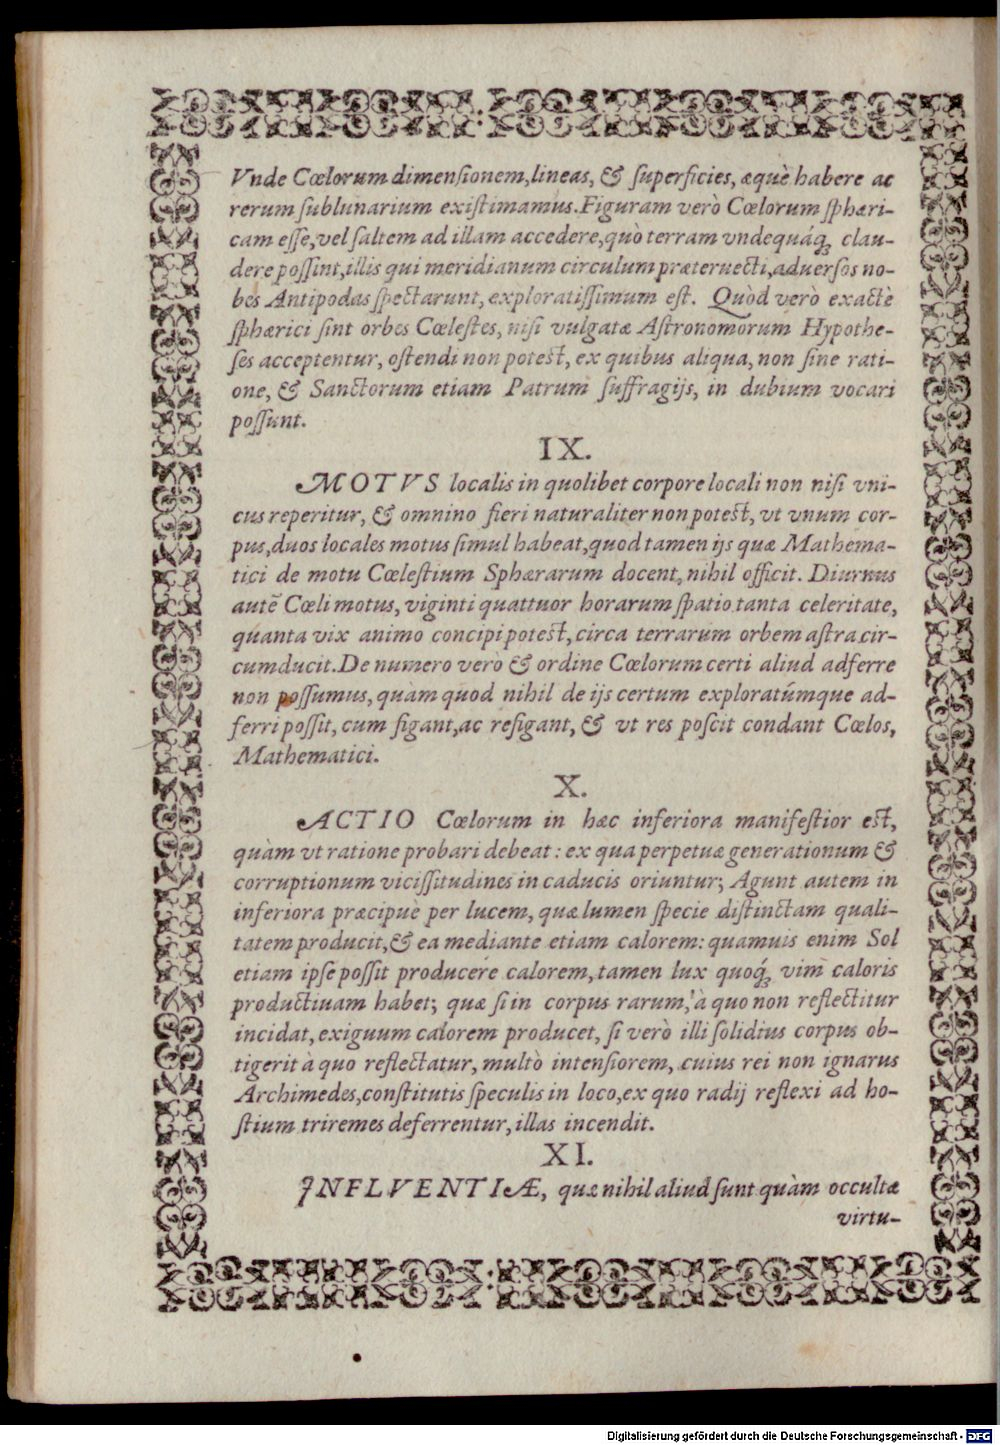 Vnde Cœlorum dimensionem, lineas, & superficies, æquè habere ac
rerum sublunarium existimamus. Figuram verò Cœlorum sphæri-
cam esse, vel saltem ad illam accedere, quò terram vndequáq; clau-
dere possint, illis qui meridianum circulum præteruecti, aduersos no-
bis Antipodas spectarunt, exploratissimum est. Quòd verò exactè
sphærici sint orbes Cœlestes, nisi vulgatæ Astronomorum Hypothe-
ses acceptentur, ostendi non potest, ex quibus aliqua, non sine rati-
one, & Sanctorum etiam Patrum suffragijs, in dubium vocari
possunt.
IX.
MOTVS localis in quolibet corpore locali non nisi vni-
cus reperitur, & omnino fieri naturaliter non potest, vt vnum cor-
pus, duos locales motus simul habeat, quod tamen ijs quæ Mathema-
tici de motu Cœlestium Sphærarum docent, nihil officit. Diurnus
autē Cœli motus, viginti quattuor horarum spatio tanta celeritate,
quanta vix animo concipi potest, circa terrarum orbem astra cir-
cumducit. De numero verò & ordine Cœlorum certi aliud adferre
non possumus, quàm quod nihil de ijs certum exploratúmque ad-
ferri possit, cum figant, ac refigant, & vt res poscit condant Cœlos,
Mathematici.
X.
ACTIO Cœlorum in hæc inferiora manifestior est,
quàm vt ratione probari debeat: ex qua perpetuæ generationum &
corruptionum vicissitudines in caducis oriuntur; Agunt autem in
inferiora præcipuè per lucem, quæ lumen specie distinctam quali-
tatem producit, & ea mediante etiam calorem: quamuis enim Sol
etiam ipse possit producere calorem, tamen lux quoq́; vim caloris
productiuam habet; quæ si in corpus rarum, à quo non reflectitur
incidat, exiguum calorem producet, si verò illi solidius corpus ob-
tigerit à quo reflectatur, multò intensiorem, cuius rei non ignarus
Archimedes, constitutis speculis in loco, ex quo radij reflexi ad ho-
stium triremes deferrentur, illas incendit.
XI.
INFLVENTIÆ, quæ nihil aliud sunt quàm occultæ
virtu-
Digitalisierung gefördert durch die Deutsche Forschungsgemeinschaft - DFG